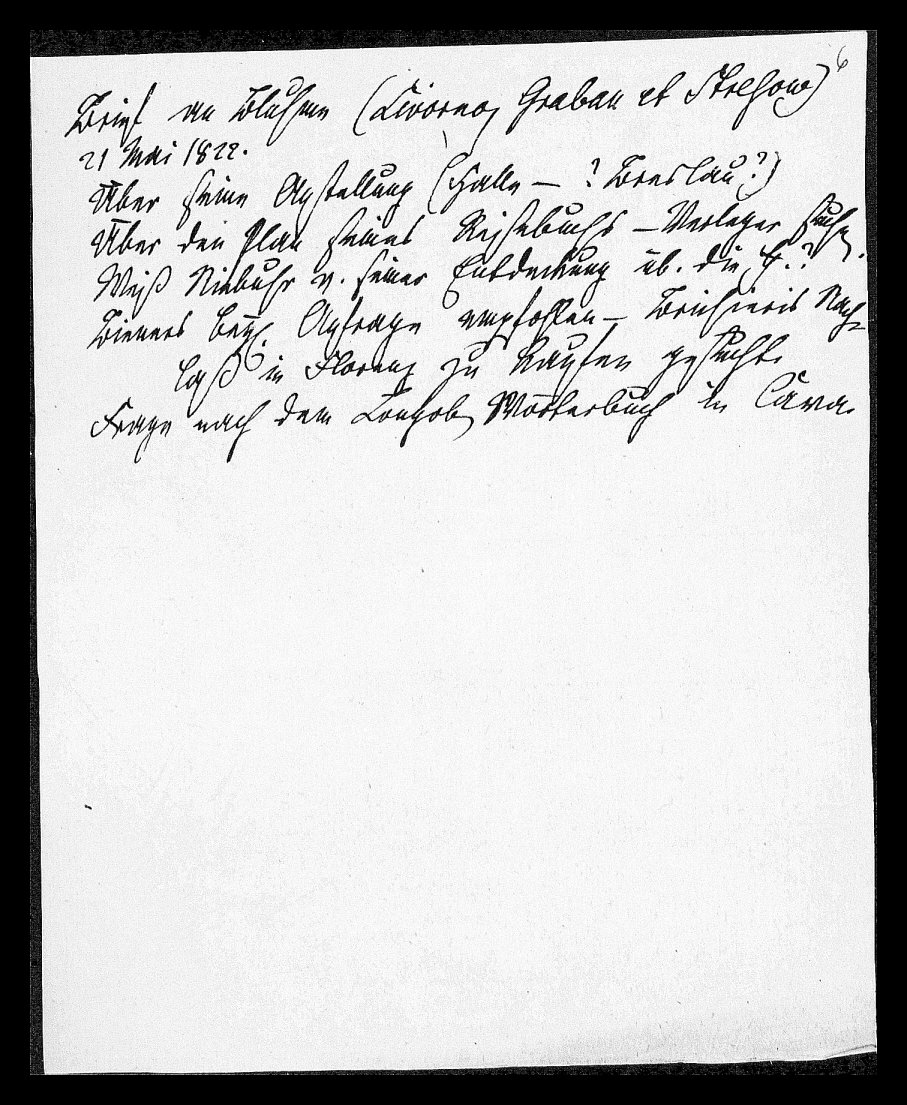 6
Brief an Bluhme (Livorno, Graban et Strehow)
21 Mai 1822.
Über seine Anstellung (Halle — ? Breslau?)
Über den Plan seines Reisebuchs – Verleger suche.
Weiß Niebuhr v. seiner Entdeckung üb. die
Bieners bez. Anfrage empfohlen – Nach-
laß in Florenz zu kaufen gesucht.
Frage nach dem Longob. Wörterbuch in Cava.